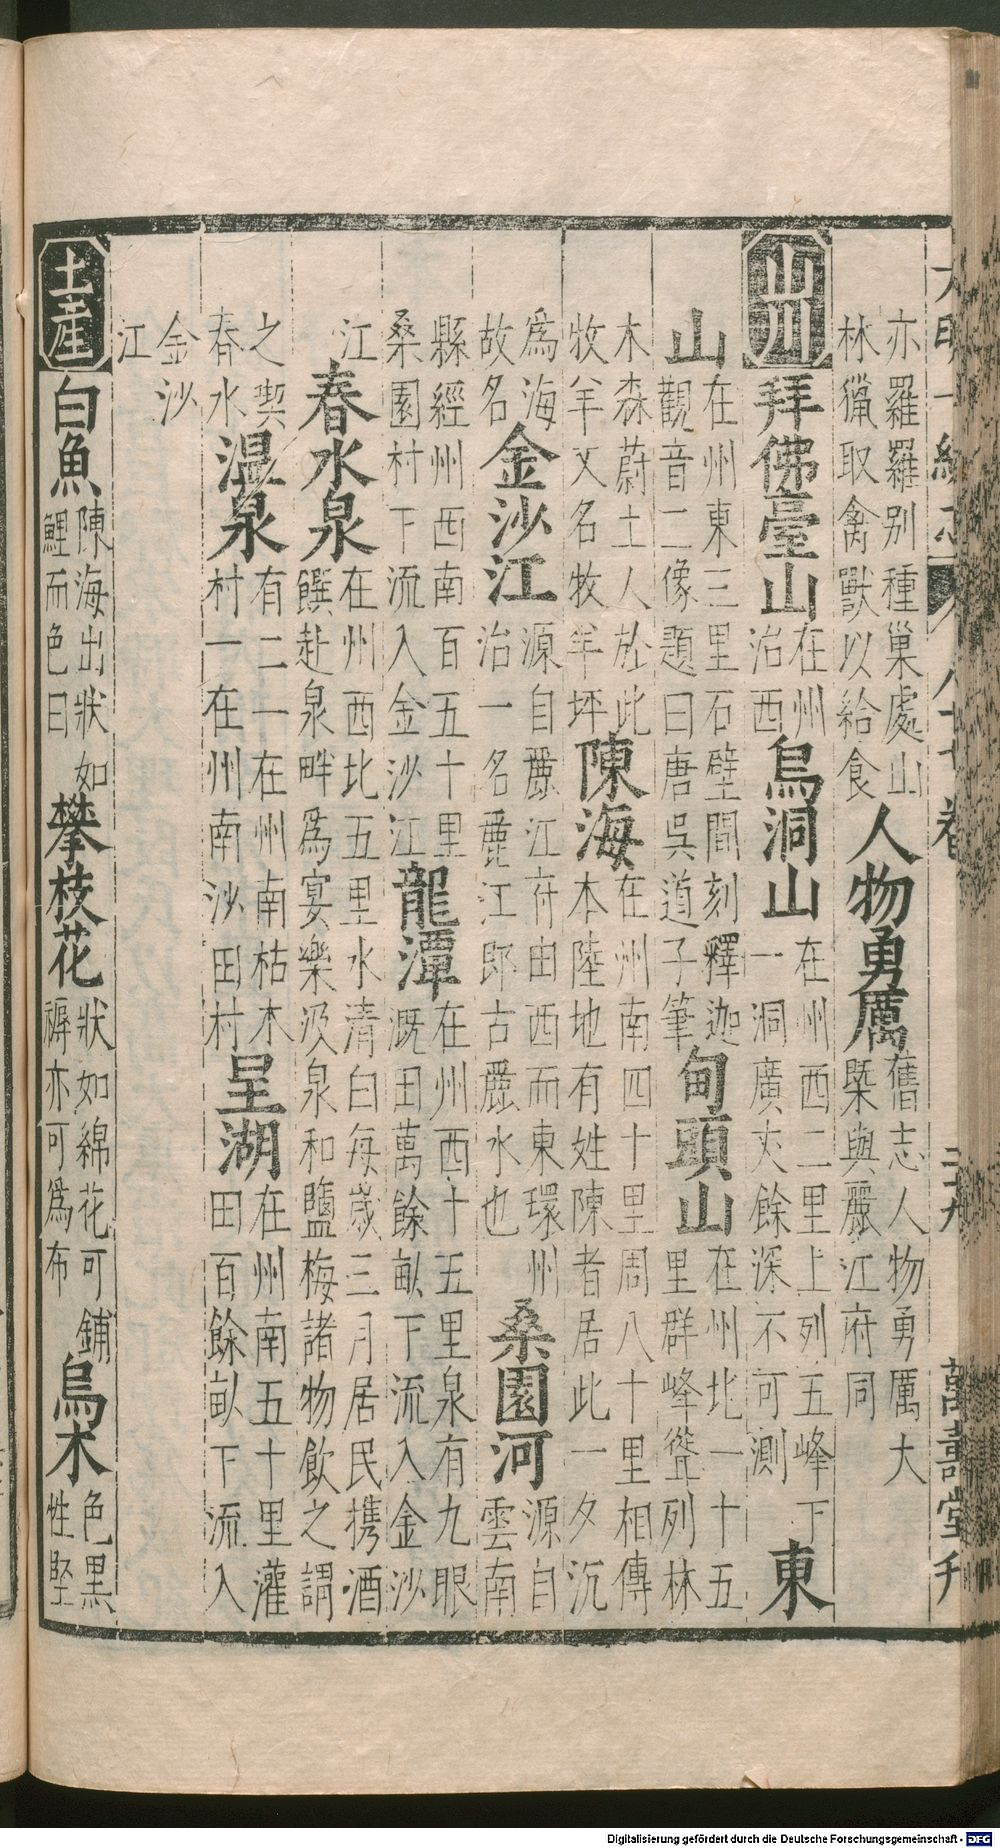 大明一統志 八十七卷 三九 萬壽堂刊
亦羅羅別種巢處山
林獵取禽獸以給食
人物勇厲
舊志人物勇厲大
槩與麗江府同
山川
拜佛臺山
在州
治西
烏洞山
在州西二里上列五峰下
一洞廣丈餘深不可測
東
山
在州東三里石壁間刻釋迦
觀音二像題曰唐吳道子筆
甸頭山
在州北一十五
里群峰聳列林
木森蔚土人於此
牧羊又名牧羊坪
陳海
在州南四十里周八十里相傳
本陸地有姓陳者居此一夕沉
爲海
故名
金沙江
源自麗江府由西而東環州
治一名麗江即古麗水也
桑園河
源自
雲南
縣經州西南百五十里
桑園村下流入金沙江
龍潭
在州西十五里泉有九眼
溉田萬餘畝下流入金沙
江
春水泉
在州西北五里水清白每歲三月居民携酒
饌赴泉畔爲宴樂汲泉和鹽梅諸物飲之謂
之禊
春水
温泉
有二一在州南枯木
村一在州南沙田村
呈湖
在州南五十里灌
田百餘畝下流入
金沙
江
土產
白魚
陳海出狀如
鯉而色曰
攀枝花
狀如綿花可鋪
褥亦可爲布
烏木
色黑
性堅
Digitalisierung gefördert durch die Deutsche Forschungsgemeinschaft - DFG